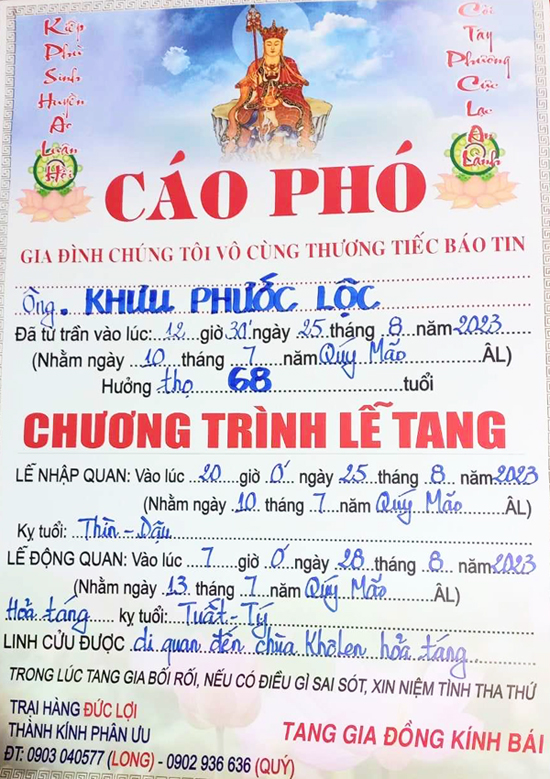 Kiếp
Phù
Sinh
Huyền
Ảo
Luân
Hồi
Cõi
Tây
Phương
Cực
Lạc
An
Lành
CÁO PHÓ
GIA ĐÌNH CHÚNG TÔI VÔ CÙNG THƯƠNG TIẾC BÁO TIN
Ông. KHƯU PHƯỚC LỘC
Đã từ trần vào lúc: 12 giờ 30' ngày 25 tháng 8 năm 2023
(Nhằm ngày 10 tháng 7 năm Quý Mão ÂL)
Hưởng thọ 68 tuổi
CHƯƠNG TRÌNH LỄ TANG
LỄ NHẬP QUAN: Vào lúc 20 giờ 0' ngày 25 tháng 8 năm 2023
(Nhằm ngày 10 tháng 7 năm Quý Mão ÂL)
Kỵ tuổi: Thìn - Dậu
LỄ ĐỘNG QUAN: Vào lúc 7 giờ 0' ngày 28 tháng 8 năm 2023
(Nhằm ngày 13 tháng 7 năm Quý Mão ÂL)
Hoả táng kỵ tuổi: Tuất - Tý
LINH CỬU ĐƯỢC di quan đến chùa Khơlen hỏa táng
TRONG LÚC TANG GIA BỐI RỐI, NẾU CÓ ĐIỀU GÌ SAI SÓT, XIN NIỆM TÌNH THA THỨ
TRẠI HÀNG ĐỨC LỢI
THÀNH KÍNH PHÂN ƯU
ĐT: 0903 040577 (LONG) - 0902 936 636 (QUÝ)
TANG GIA ĐỒNG KÍNH BÁI